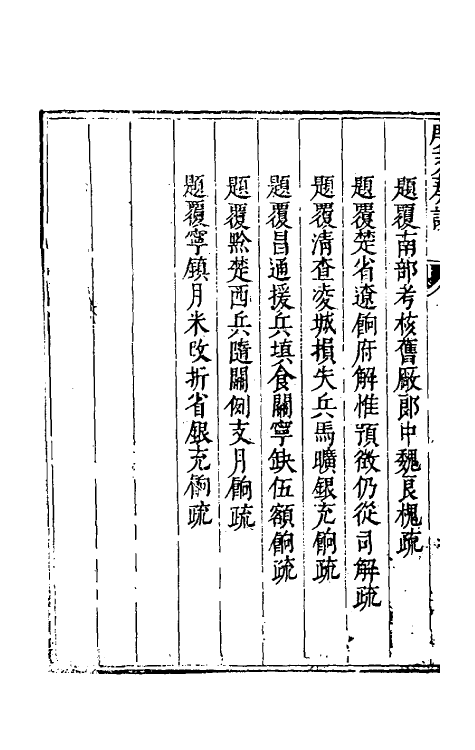 題覆南部考核舊厰郎中魏良槐疏
題覆楚省遼餉府解惟預徵仍從司解疏
題覆清查凌城損失兵馬曠銀充餉疏
題覆昌通援兵填食關寧缺伍額餉疏
題覆黔楚西兵隨關例支月餉疏
題覆寧鎮月米改折省銀充餉疏